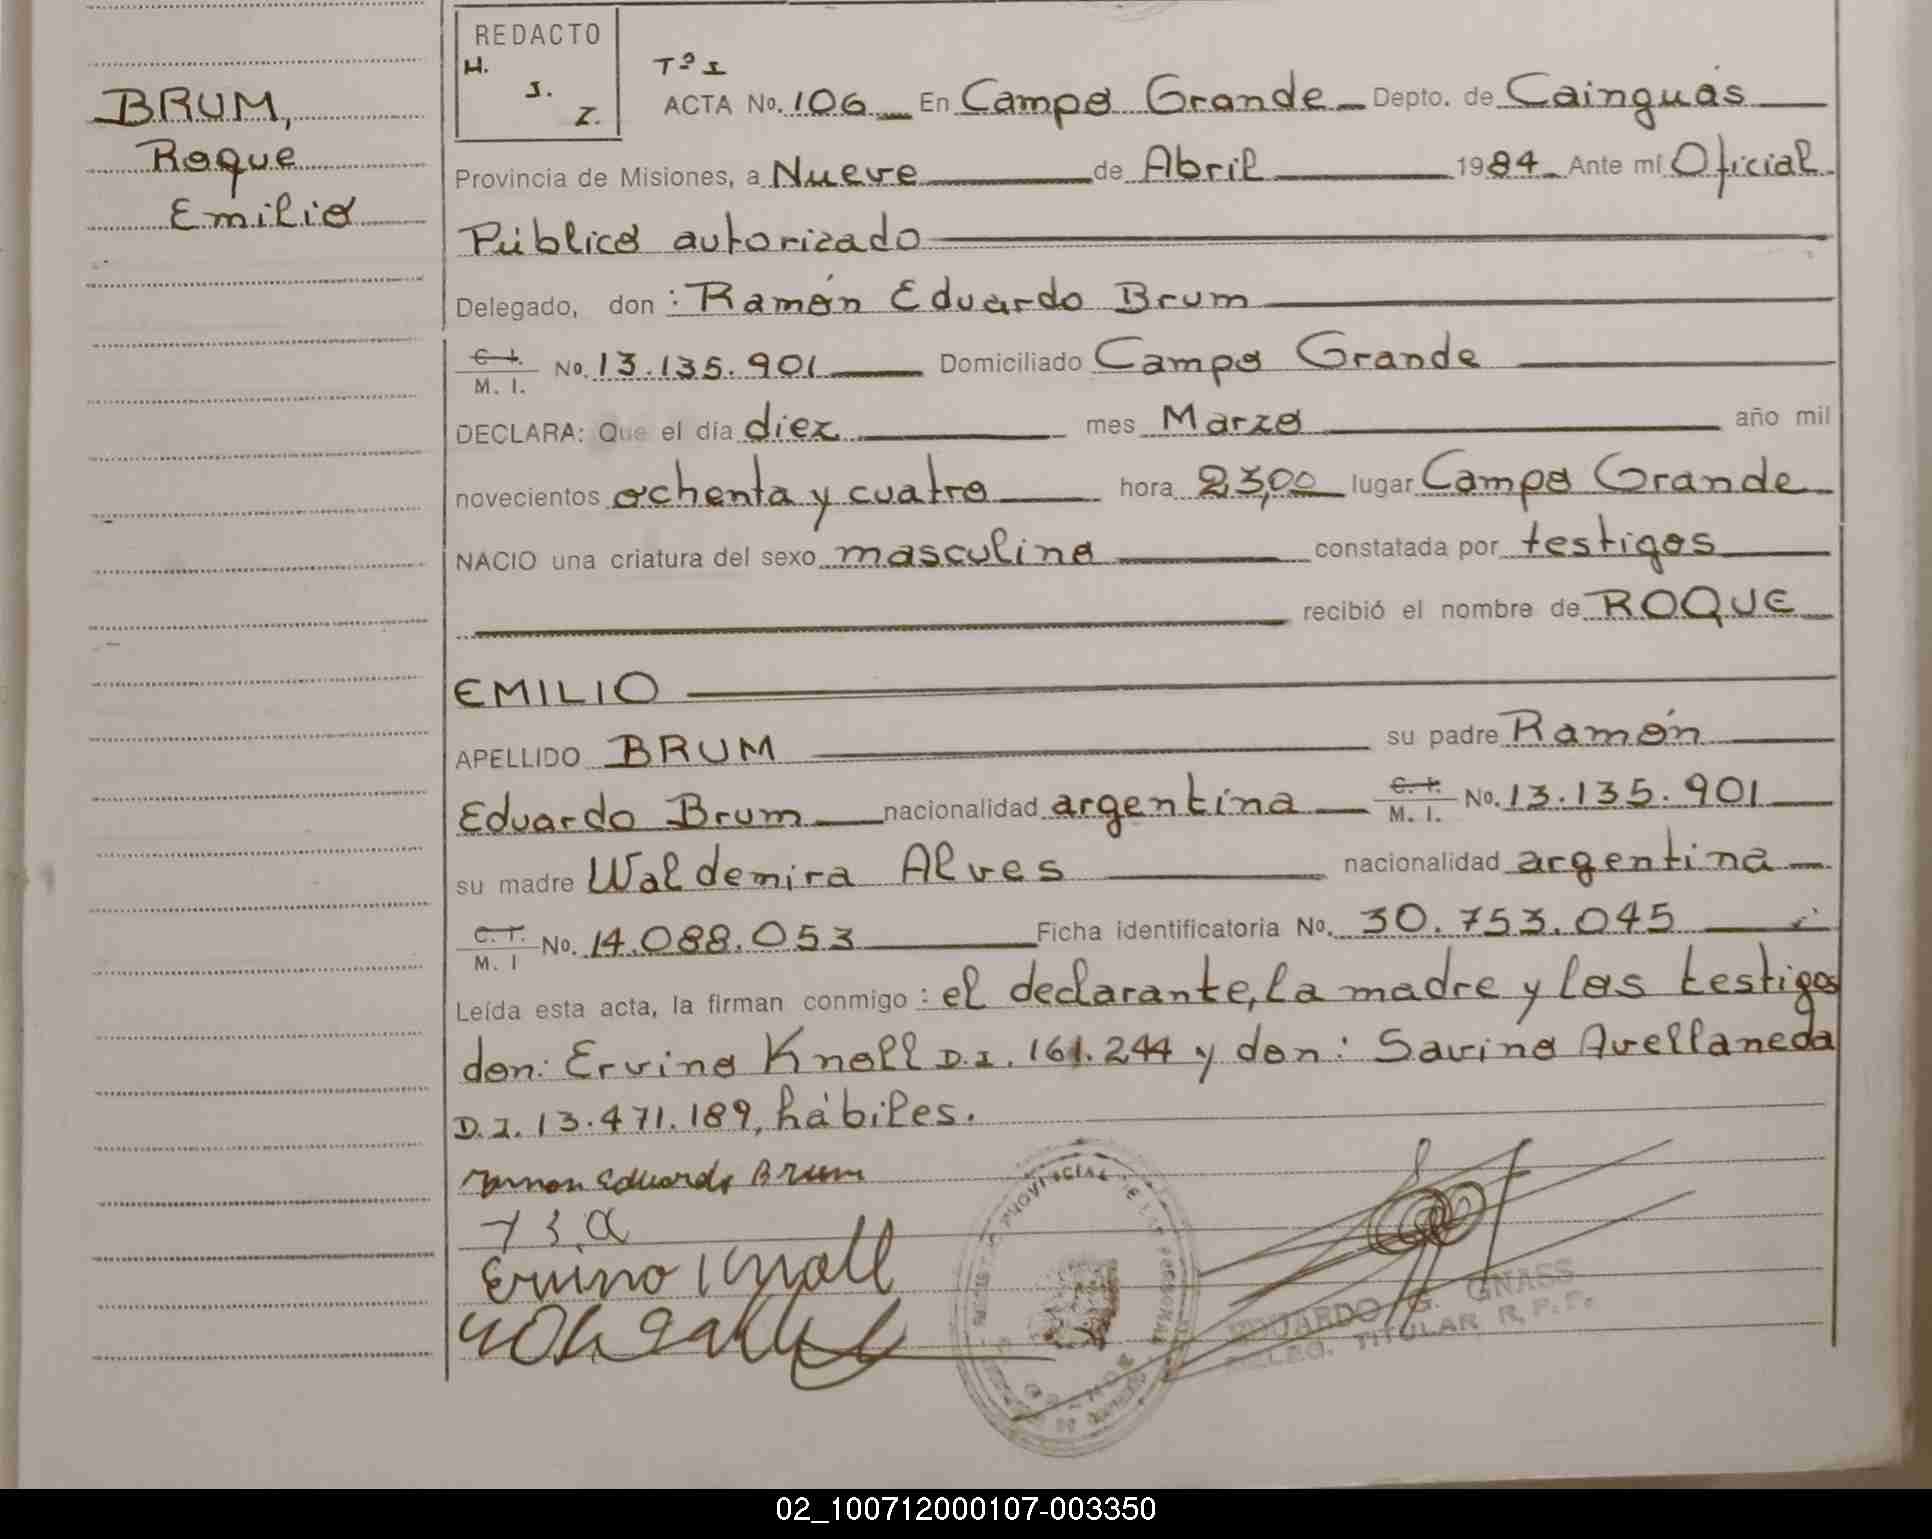 BRUM,
Roque
Emilio
REDACTO
H.
J.
Z.
Tº I
ACTA No. 106 En Campo Grande Depto. de Cainguás
Provincia de Misiones, a Nueve de Abril 1984 Ante mí Oficial
Público autorizado
Delegado, don : Ramón Eduardo Brum
C. I.
M. I. No. 13.135.901 Domiciliado Campo Grande
DECLARA: Que el día diez mes Marzo año mil
novecientos ochenta y cuatro hora 23,00 lugar Campo Grande
NACIO una criatura del sexo masculino constatada por testigos
recibió el nombre de ROQUE
EMILIO
APELLIDO BRUM su padre Ramón
Eduardo Brum nacionalidad argentina C. I. M. I. No. 13.135.901
su madre Waldemira Alves nacionalidad argentina
C. I.
M. I No. 14.088.053 Ficha identificatoria No. 30.753.045
Leída esta acta, la firman conmigo : el declarante, la madre y los testigos
don: Ervino Knoll D.I. 161.244 y don: Savino Avellaneda
D.I. 13.471.189, hábiles.
Ramon Eduardo Brum
Ervino Knoll
PROVINCIAL DE LAS PERSONAS
EDUARDO G. GNASS
DELEG. TITULAR R.P.P.
02_100712000107-003350